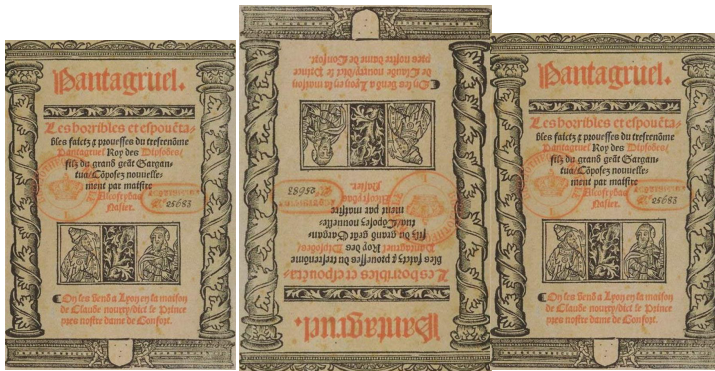 Pantagruel.
Les horribles et espouēta-
bles faictz ⁊ prouesses du tresrenōme
Pantagruel Roy des Dipsodes/
filz du grand geāt Gargan-
tua/ Cōposez nouuelle-
ment par maistre
Alcofrybas
Nasier.
25683
¶On les vend a Lyon en la maison
de Claude nourry/dict le Prince
pres nostre dame de Confort.
Pantagruel.
Les horribles et espouēta-
bles faictz ⁊ prouesses du tresrenōme
Pantagruel Roy des Dipsodes/
filz du grand geāt Gargan-
tua/ Cōposez nouuelle-
ment par maistre
Alcofrybas
Nasier.
25683
¶On les vend a Lyon en la maison
de Claude nourry/dict le Prince
pres nostre dame de Confort.
Pantagruel.
Les horribles et espouēta-
bles faictz ⁊ prouesses du tresrenōme
Pantagruel Roy des Dipsodes/
filz du grand geāt Gargan-
tua/ Cōposez nouuelle-
ment par maistre
Alcofrybas
Nasier.
25683
¶On les vend a Lyon en la maison
de Claude nourry/dict le Prince
pres nostre dame de Confort.